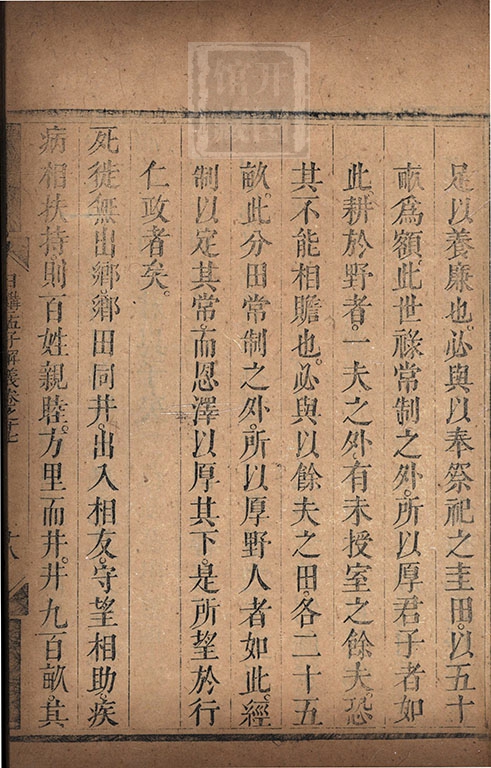 足以養廉也。必與以奉祭祀之圭田。以五十
畝爲額。此世祿常制之外。所以厚君子者如
此。耕於野者。一夫之外。有未授室之餘夫。恐
其不能相贍也。必與以餘夫之田。各二十五
畝。此分田常制之外。所以厚野人者如此。經
制以定其常。而恩澤以厚其下。是所望於行
仁政者矣。
死徙無出鄉。鄉田同井。出入相友。守望相助。疾
病相扶持。則百姓親睦。方里而井。井九百畝。其
日講孟子解義卷之十七